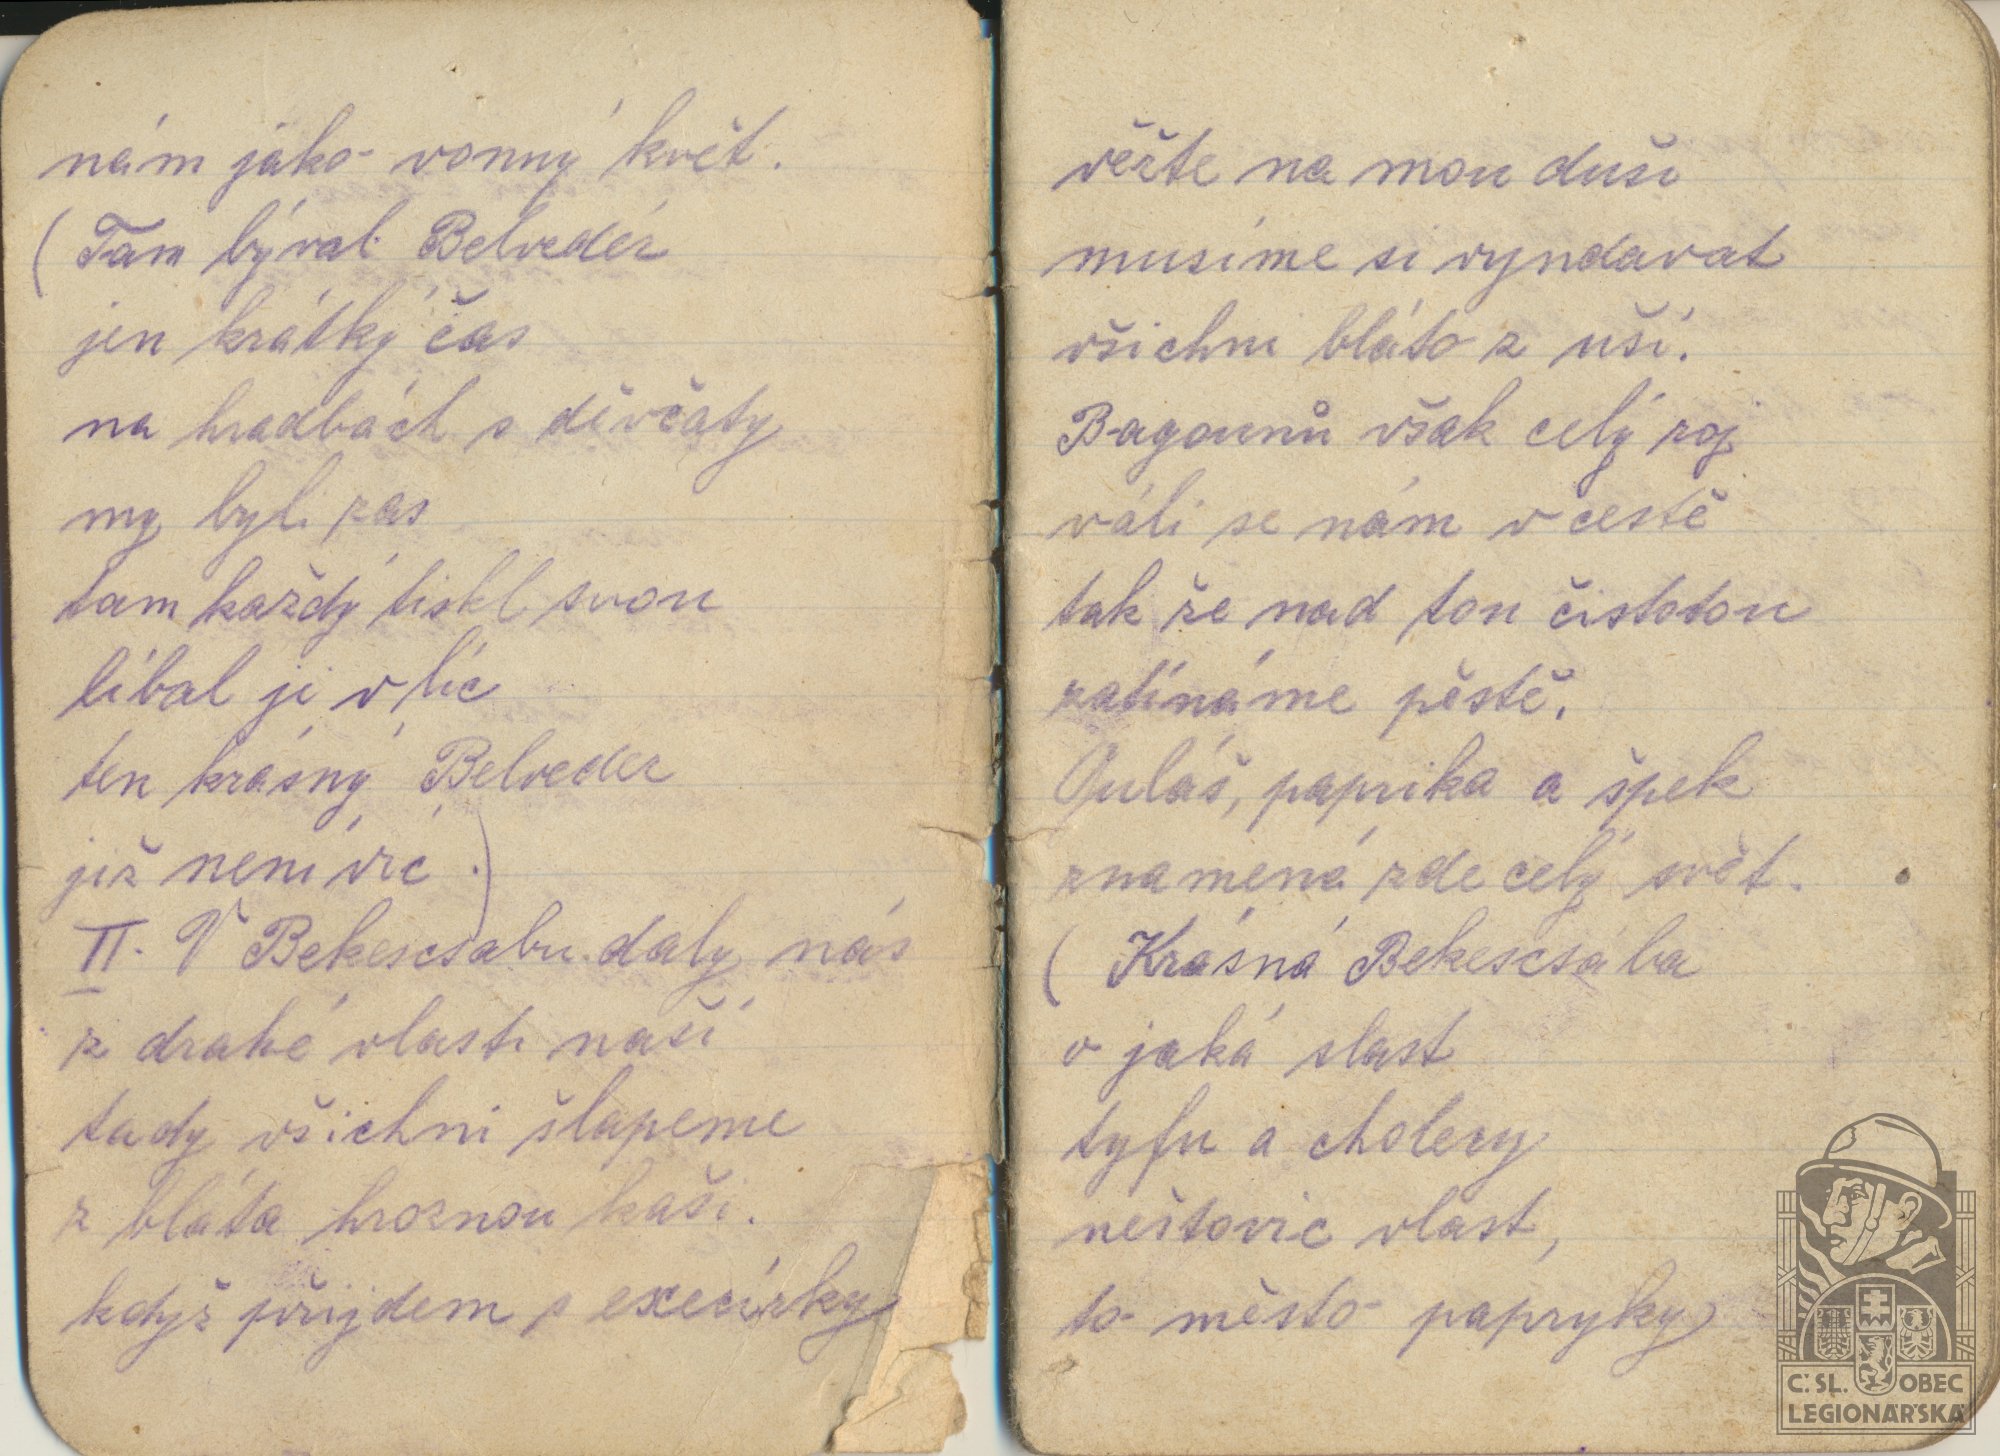 nám jako vonný květ.
(Tam býval Belvedér
jen krátký čas
na hradbách s děvčaty
my byli zas
tam každý tiskl svou
líbal ji v líc
ten krásný Belveder
již není víc.)
II. V Bekescsabu daly nás
z drahé vlasti naší
tady všichni šlapeme
z bláta hroznou kaši.
když přijdem s execírky
věřte na mou duši
musíme si vyndavat
všichni bláto z uší.
Bagounů však celý roj
válí se nám v cestě
tak že nad tou čistotou
zatínáme pěstě.
Guláš, paprika a špek
znamená zde celý svět.
(Krásná Bekescsába
o jaká slast
tyfu a cholery
neštovic vlast,
to město papryky
Č. SL. OBEC
LEGIONÁŘSKÁ